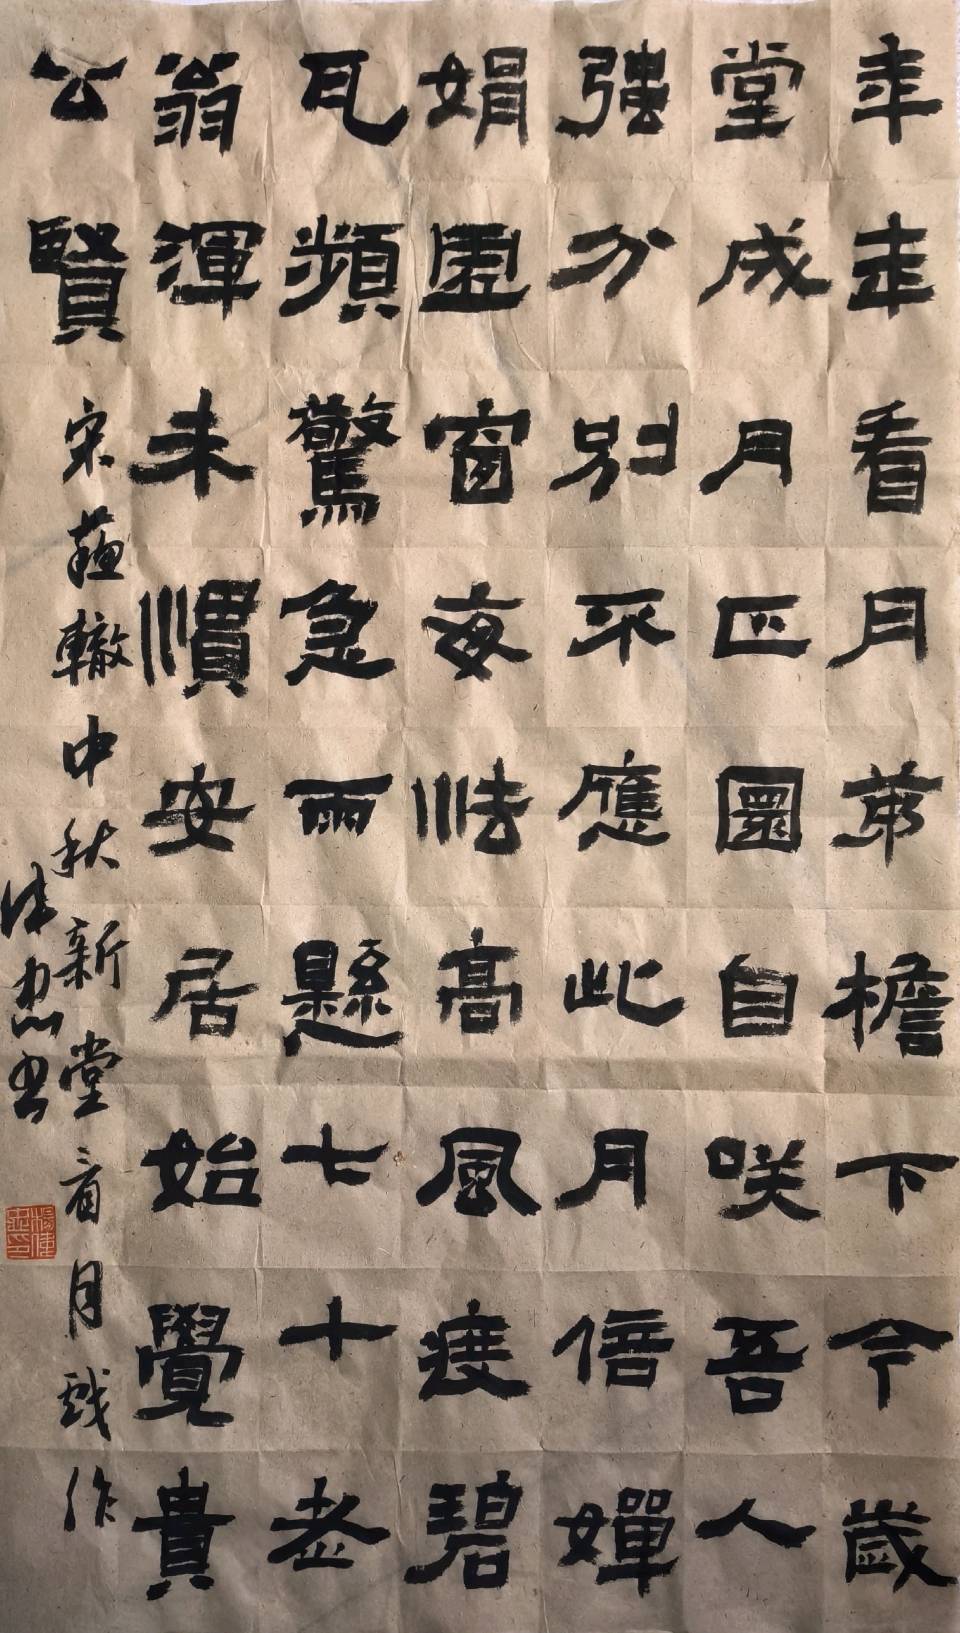 年年看月茅檐下今歲
堂成月正圜自咲吾人
强分別不應此月倍嬋
娟虛窗每怯高風度碧
瓦頻驚急雨懸七十老
翁渾未慣安居始覺貴
公賢 宋蘇轍中秋新堂看月戲作
偉忠書
楊偉忠印